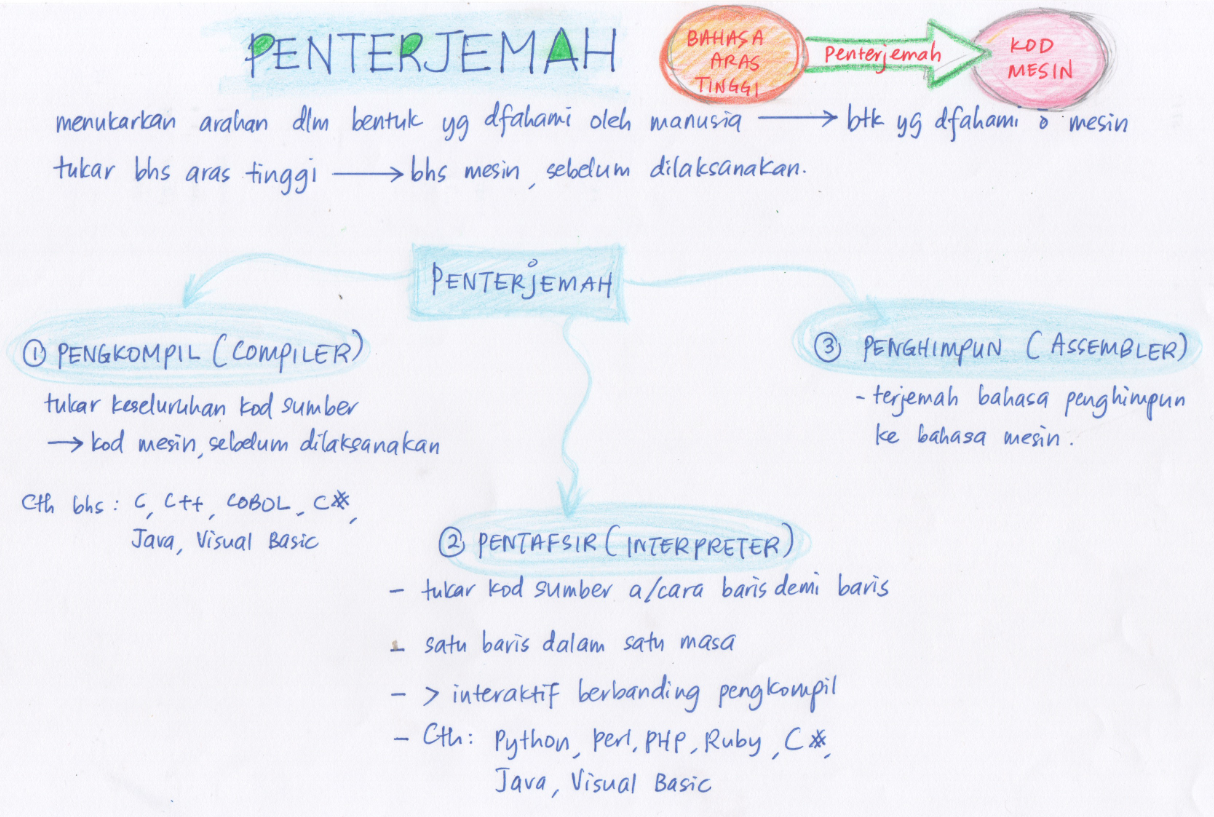 PENTERJEMAH
BAHASA
ARAS
TINGGI
Penterjemah
KOD
MESIN
menukarkan arahan dlm bentuk yg dfahami oleh manusia → btk yg dfahami o mesin
tukar bhs aras tinggi → bhs mesin, sebelum dilaksanakan.
PENTERJEMAH
① PENGKOMPIL (COMPILER)
tukar keseluruhan kod sumber
→ kod mesin, sebelum dilaksanakan
Cth bhs : C, C++, COBOL, C#,
Java, Visual Basic
② PENTAFSIR (INTERPRETER)
- tukar kod sumber a/cara baris demi baris
- satu baris dalam satu masa
- > interaktif berbanding pengkompil
- Cth: Python, Perl, PHP, Ruby, C#,
Java, Visual Basic
③ PENGHIMPUN (ASSEMBLER)
- terjemah bahasa penghimpun
ke bahasa mesin.